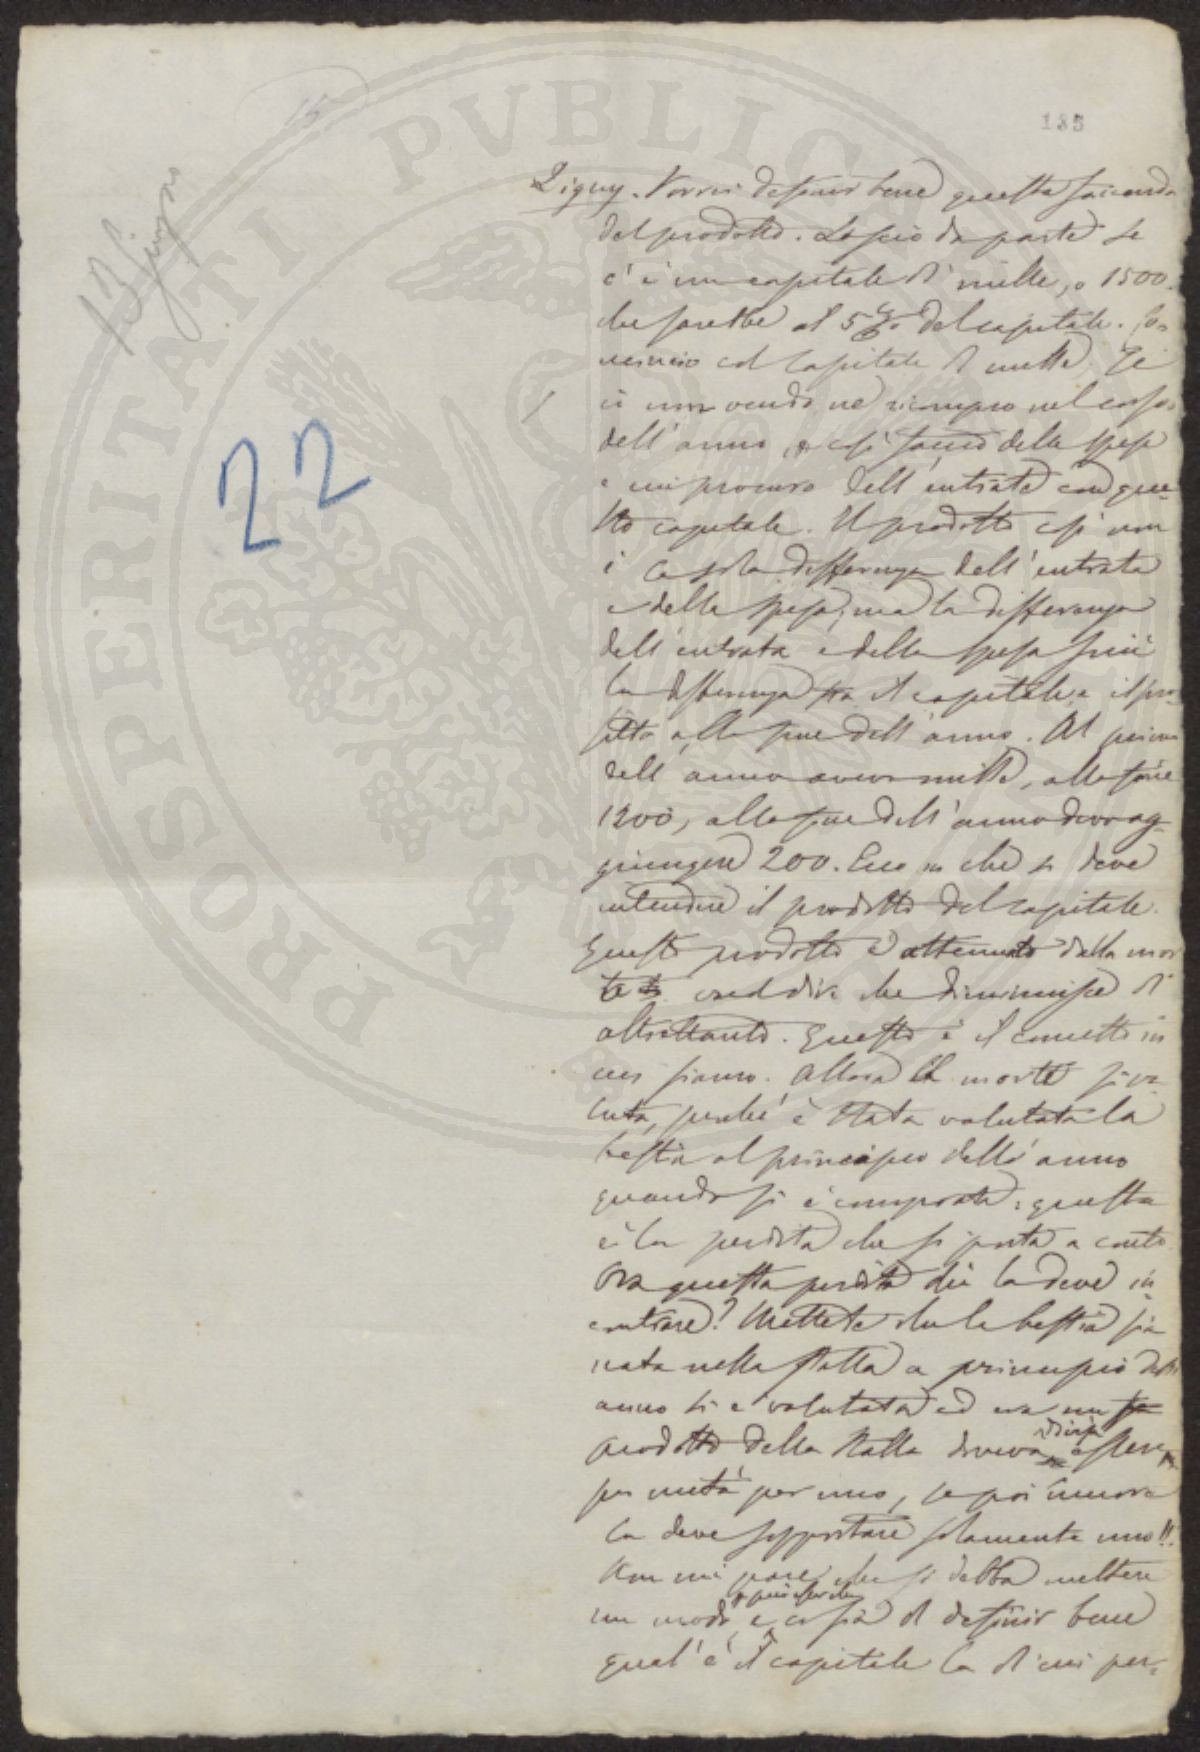 15
185
13 Giugno
22
Digny. Vorrei definir bene questa faccenda
del prodotto. Lascio da parte se
c'è un capitale di mille, o 1500.
che sarebbe al 5 % del capitale. Co-
mincio col capitale di mille. Se
io non vendo, nè ricompro nel corso
dell'anno, e così faccio delle spese
e mi procuro dell'entrate con que-
sto capitale. Il prodotto così non
è la sola differenza dell'entrata
e della spesa, ma la differenza
dell'entrata e della spesa più
la differenza tra il capitale e il pro-
fitto alla fine dell'anno. Al primo
dell'anno avevo mille, alla fine
1200, alla fine dell'anno devo ag-
giungere 200. Ecco in che si deve
intendere il prodotto del capitale.
Questo prodotto è attenuato dalla mor-
te vuol dire che diminuisce di
altrettanto. Questo è il concetto in
cui siamo. Allora la morte si va-
luta, perché è stata valutata la
bestia al principio dell'anno
quando si è comprata: questa
è la perdita che si porta a conto.
Ora questa perdita chi la deve in-
contrare? Mettete che la bestia sia
nata nella stalla a principio dell'
anno si è valutata ed era un
prodotto della stalla doveva essere
divisa
per metà per uno, se poi muore
la deve sopportare solamente uno!!
Non mi pare che si debba mettere
un modo, e così di definir bene
qual'è il capitale la di cui per-